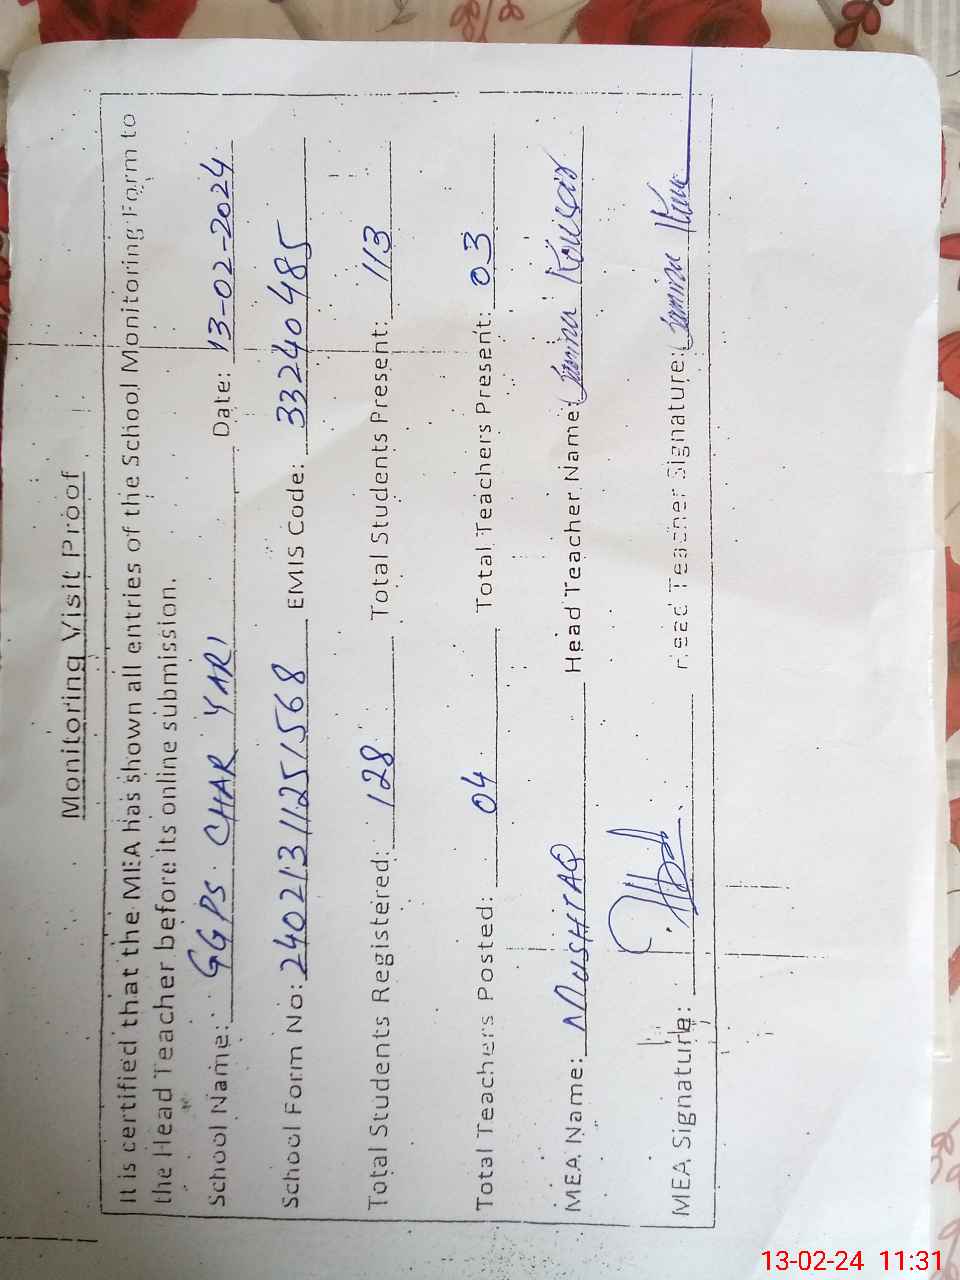 Monitoring Visit Proof
It is certified that the MEA has shown all entries of the School Monitoring Form to
the Head Teacher before its online submission.
School Name: GGPS CHAR YARI Date: 13-02-2024
School Form No: 24021311251568 EMIS Code: 33240485
Total Students Registered: 128 Total Students Present: 113
Total Teachers Posted: 04 Total Teachers Present: 03
MEA Name: MUSHTAQ Head Teacher Name: Samina Kousar
MEA Signature: Head Teacher Signature: Samina
13-02-24 11:31